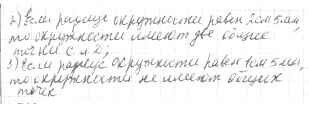 2) Если радиус окружности равен 2см 5мм,
то окружности имеют две общие
точки с и D;
3) Если радиус окружности равен 1см 5мм,
то окружности не имеют общих
точек